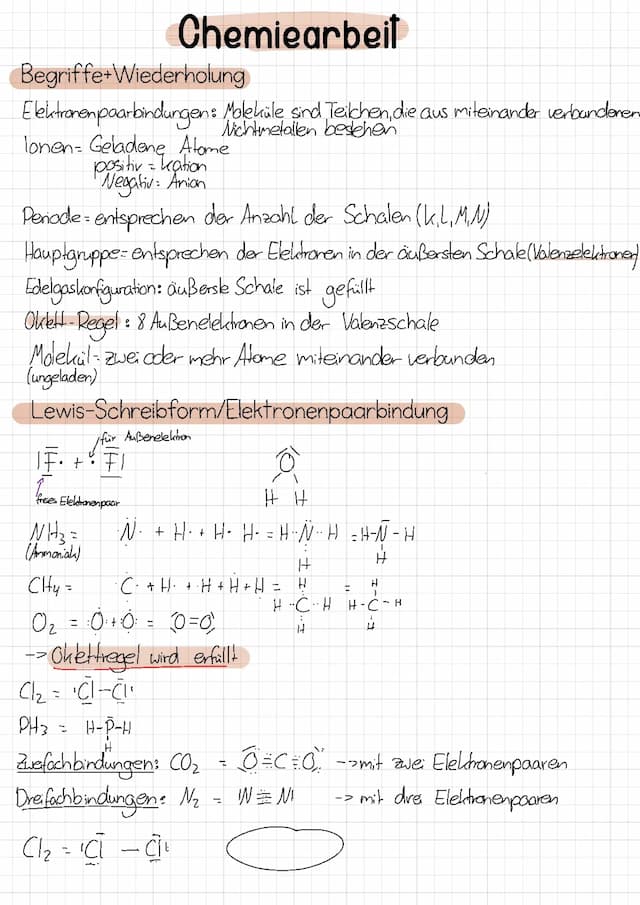 Chemiearbeit
Begriffe+Wiederholung
Elektronenpaarbindungen: Moleküle sind Teilchen, die aus miteinander verbundenen
Nichtmetallen bestehen
Ionen= Geladene Atome
positiv = Kation
Negativ= Anion
Periode= entsprechen der Anzahl der Schalen (K,L,M,N)
Hauptgruppe= entsprechen der Elektronen in der äußersten Schale (Valenzelektronen)
Edelgaskonfiguration: äußerste Schale ist gefüllt
Oktett-Regel: 8 Außenelektronen in der Valenzschale
Molekül= zwei oder mehr Atome miteinander verbunden
(ungeladen)
Lewis-Schreibform/Elektronenpaarbindung
für Außenelektron
|F· + ·F|
O
H H
freies Elektronenpaar
NH3 = N· + H· + H· H· = H··N··H = H-N-H
(Ammoniak)
H H
CH4 = C· + H· + H + H + H = H H
H·C··H H-C-H
H H
O2 = O + O = O=O
-> Oktettregel wird erfüllt
Cl2 = |Cl-Cl|
PH3 = H-P-H
H
Zweifachbindungen: CO2 = O=C=O -> mit zwei Elektronenpaaren
Dreifachbindungen: N2 = |N≡N| -> mit drei Elektronenpaaren
Cl2 = |Cl - Cl|